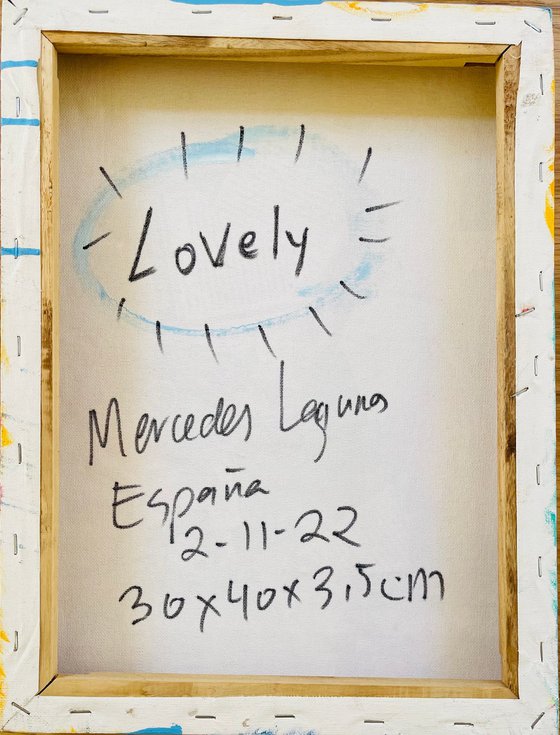 Lovely
Mercedes Laguna
España
2-11-22
30x40x3,5cm